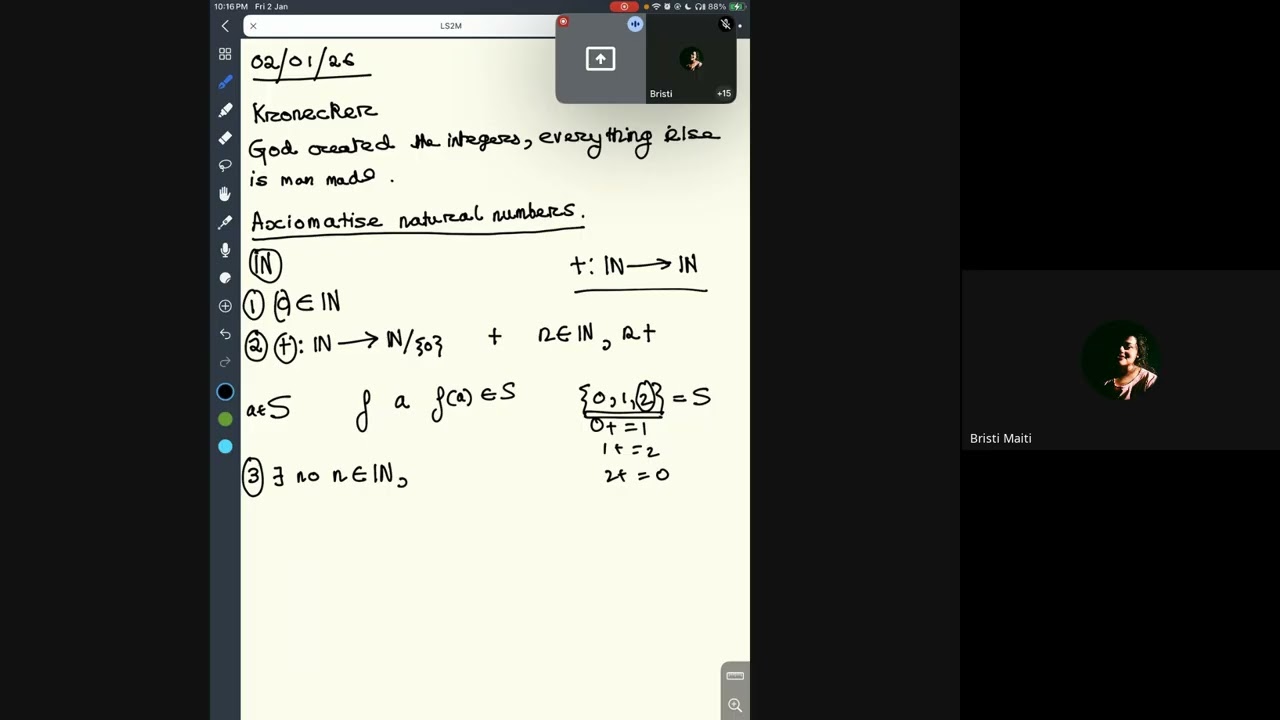 10:16 PM Fri 2 Jan
88%
LS2M
Bristi
+15
02/01/26
Kronecker
God created the integers, everything else
is man made.
Axiomatise natural numbers.
IN
+: IN → IN
① 0 ∈ IN
② +: IN → IN/{0} + n∈IN, n+
a∈S f a f(a) ∈ S {0, 1, 2} = S
0+ = 1
1+ = 2
2+ = 0
③ ∃ no n ∈ IN,
Bristi Maiti